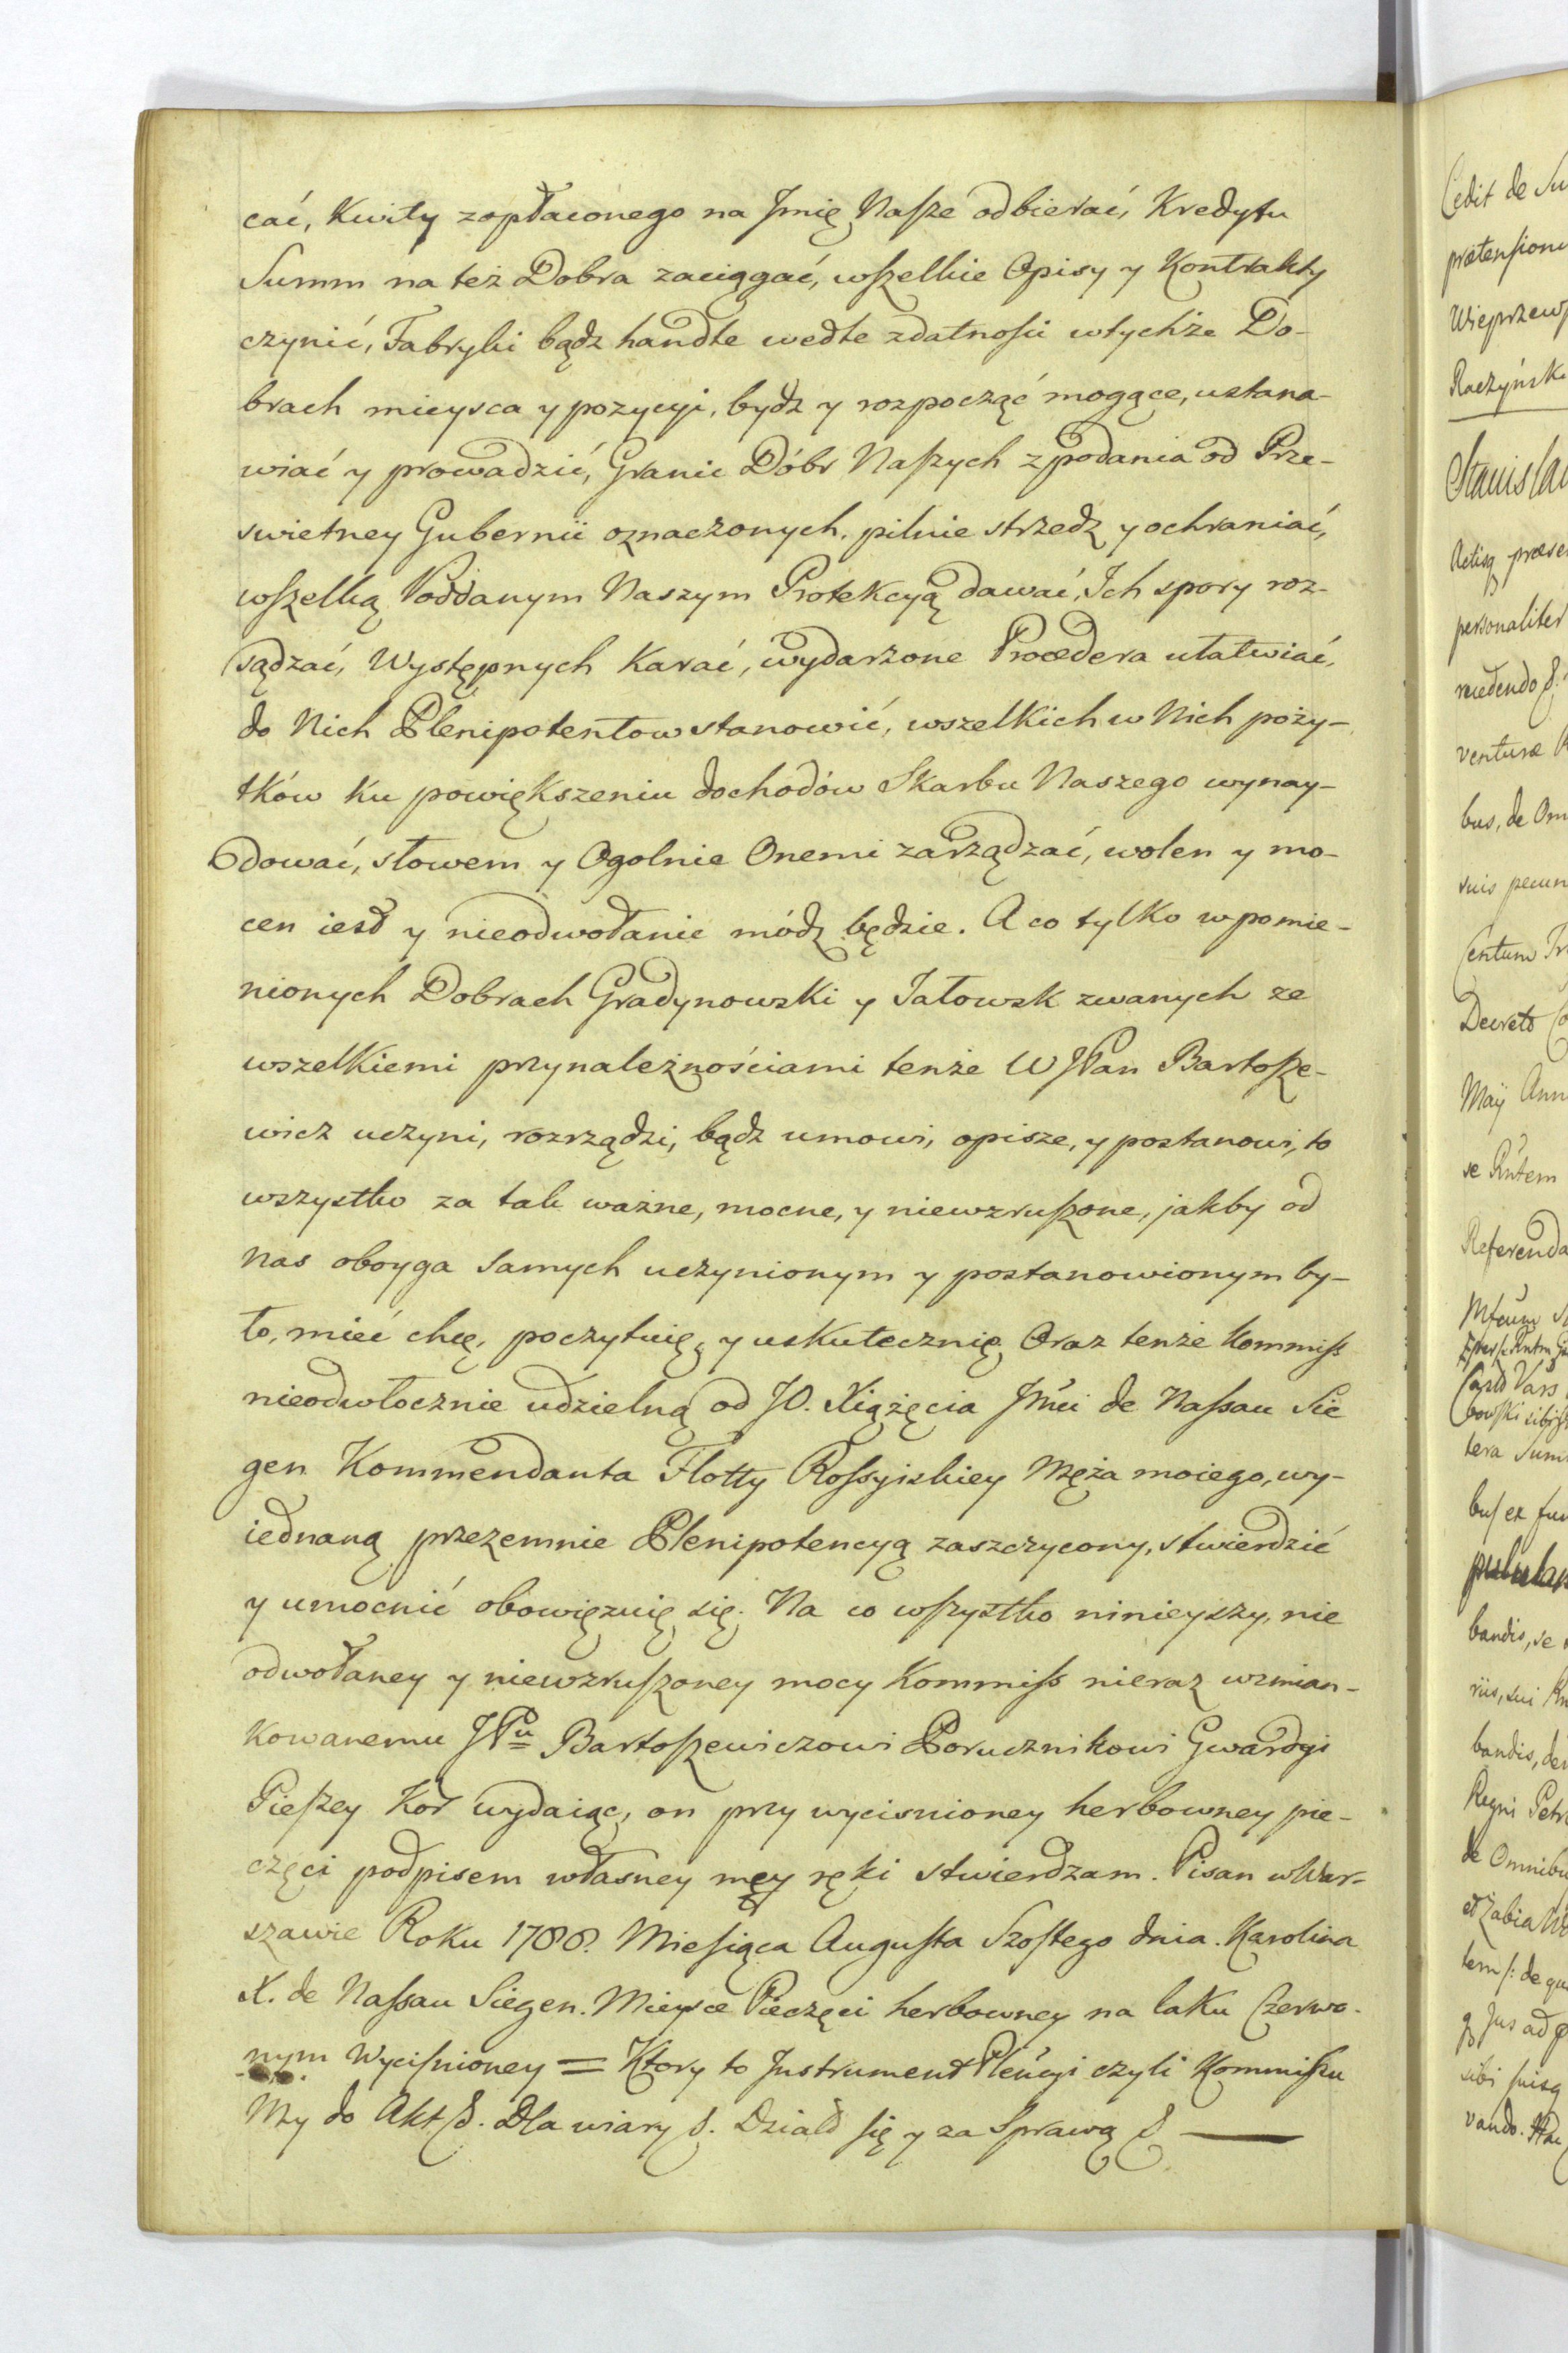 cać, Kwity zapłaconego na Jmię Nasze odbierać, Kredytu
Summ na też Dobra zaciągać, wszelkie Opisy y Kontrakty
czynić, Fabryki bądz handle wedle zdatności wtychże Do-
brach mieysca y pozycyi, bydz y rozpocząć mogące, ustana-
wiać y prowadzić, Granic Dóbr Naszych z podania od Prze-
swietney Gubernii oznaczonych, pilnie strzedz y ochraniać,
wszelką Poddanym Naszym Protekcyą dawać, Ich spory roz-
sądzać, Występnych Karać, wydarzone Procedera ułatwiać,
do Nich Plenipotentow stanowić, wszelkich w Nich poży-
tków ku powiększeniu dochodów Skarbu Naszego wynay-
dować, słowem y Ogolnie Onemi zarządzać, wolen y mo-
cen iest y nieodwołanie módz będzie. A co tylko w pomie-
nionych Dobrach Gradynowski y Jałowsk zwanych ze
wszelkiemi przynależnościami tenże WJPan Bartosze-
wicz uczyni, rozrządzi, bądz umowi, opisze, y postanowi, to
wszystko za tak ważne, mocne, y niewzruszone, jakby od
Nas oboyga samych uczynionym y postanowionym by-
ło, mieć chcę, poczytuię, y uskutecznię. Oraz tenże Kommiss
nieodwłocznie udzielną od JO. Xiążęcia Jmći de Nassau Sie
gen Kommendanta Flotty Rossyiskiey Męża moiego, wy-
iednaną przezemnie Plenipotencyą zaszczycony, stwierdzić
y umocnić obowięzuię się. Na co wszystko ninieyszy, nie
odwołaney y niewzruszoney mocy Kommiss nieraz wzmian-
kowanemu JPu Bartoszewiczowi Porucznikowi Gwardyi
Pieszey Kor wydaiąc, on przy wycisnioney herbowney pie-
częci podpisem własney mey ręki stwierdzam. Pisan w War-
szawie Roku 1788. Miesiąca Augusta Szostego dnia. Karolina
X. de Nassau Siegen. Mieysce Pieczęci herbowney na laku Czerwo-
nym Wyciśnioney = Ktory to Jnstrument Pleńcyi czyli Kommissu
My do Akt &. Dla wiary &. Działo się y za Sprawą &